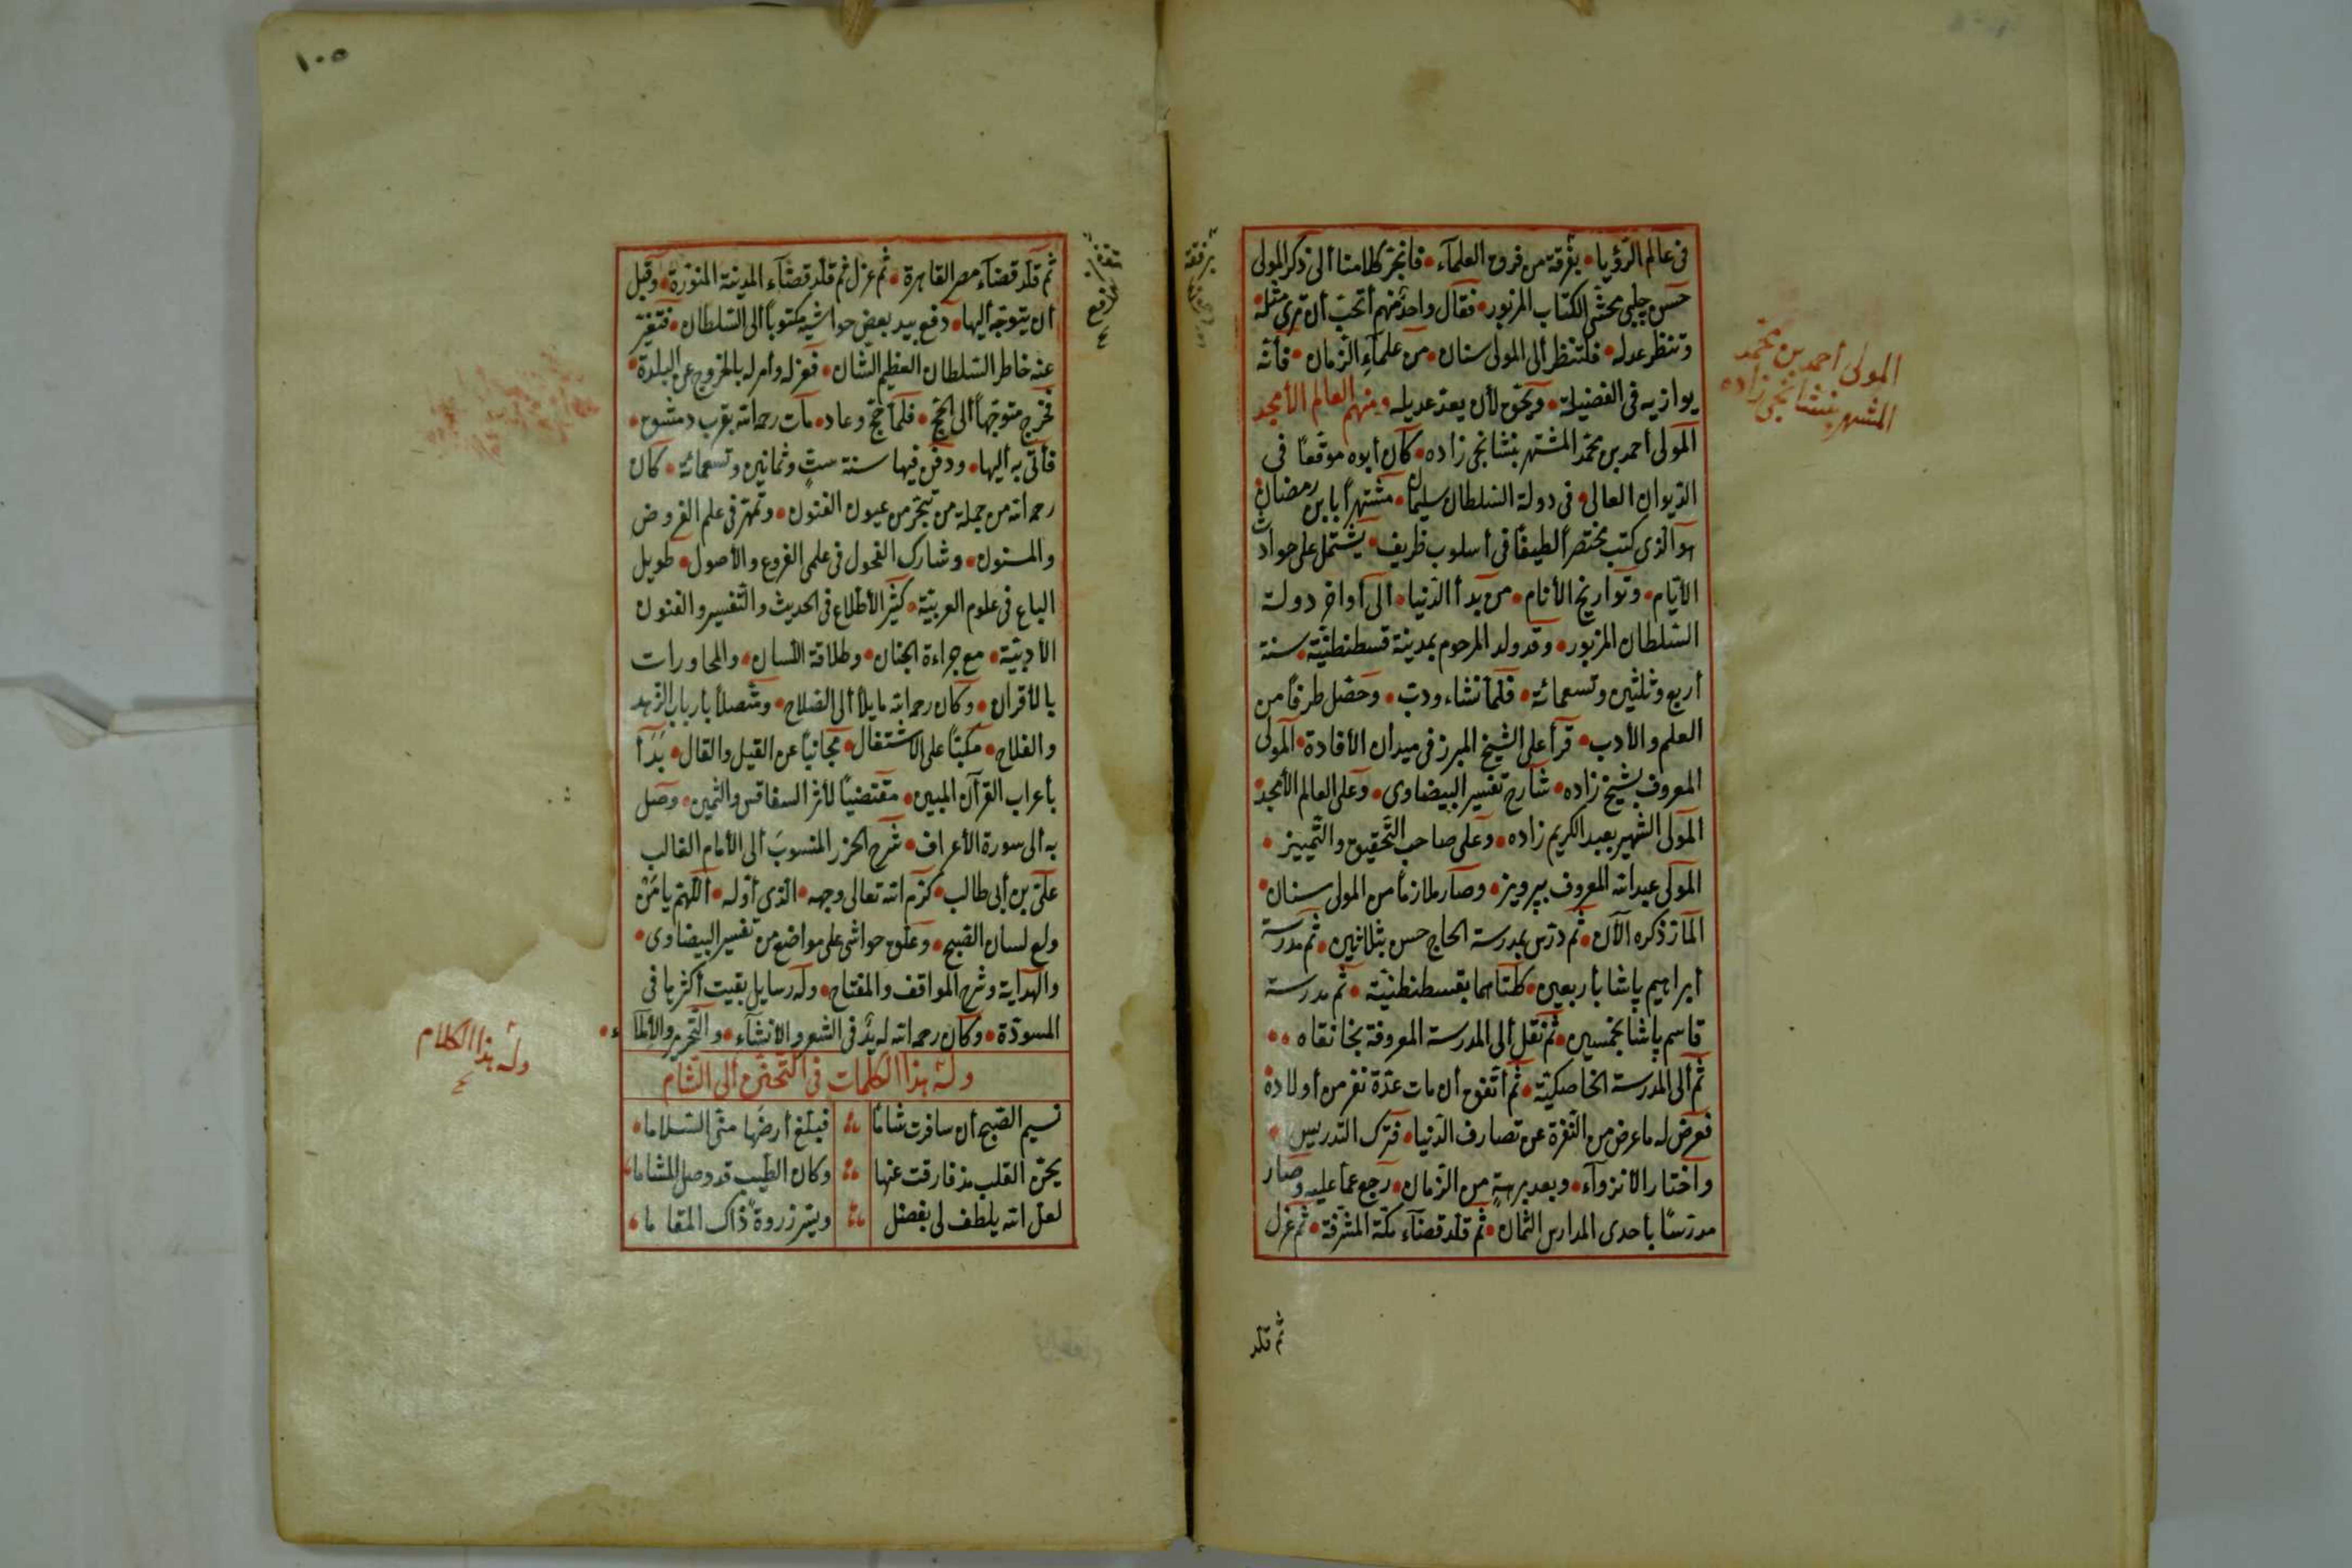 فى عالم الرّؤيا • بفرقة من فروح العلماء • فانجرّ كلامنا ألى ذكر المولى
حسن چلبى محشّى الكتاب المزبور • فقال واحدٌ منهم أتحبّ أن ترى مثله •
وتنظر عدله • فلتنظر ألى المولى سنان • من علماء الزّمان • فأنّه
يوازيه فى الفضيلة • ويحقّ لأن يعدّ عديله • ومنهم العالم الأمجد
المولى أحمد بن محمّد المشتهر بنشانجى زاده • كان أبوه موقّعاً فى
الدّيوان العالى • فى دولة السّلطان سليمان • مشتهراً بابن رمضان •
هو الّذى كتب مختصراً لطيفاً فى أسلوب ظريف • يشتمل على حوادث
الأيّام • وتواريخ الأنام • من بدأ الدّنيا • ألى أواخر دولة
السّلطان المزبور • وقد ولد المرحوم بمدينة قسطنطنيّة • سنة
أربع وثلثين وتسعمائة • فلمّا نشاء ودبّ • وحصّل طرفاً من
العلم والأدب • قرأ على الشّيخ المبرز فى ميدان الأفادة • المولى
المعروف بشيخ زاده • شارح تفسير البيضاوى • وعلى العالم الأمجد •
المولى الشهير بعبد الكريم زاده • وعلى صاحب التّحقيق والتّمييز •
المولى عبد الله المعروف بپرويز • وصار ملازماً من المولى سنان •
المارّ ذكره الآن • ثم درّس بمدرسة الحاج حسن بثلاثين • ثم مدرسة
أبراهيم پاشا بأربعين • كلتاهما بقسطنطنيّة • ثم مدرسة
قاسم پاشا بخمسين • ثم نقل ألى المدرسة المعروفة بخانقاه • •
ثم ألى المدرسة الخاصكيّة • ثم أتّفق أن مات عدّة نفر من أولاده •
فعرض له ما عرض من النّفرة عن تصارف الدّنيا • فترك التّدريس •
وأختار الأنزواء • وبعد برهةٍ من الزّمان • رجع عمّا عليه وصار
مدرّسًا بأحدى المدارس الثمان • ثم قلّد قضاء مكّة المشرّفة • ثم عزل
ثم قلّد
المولى أحمد بن محمّد
المشهر بنشانجى زاده
١٠٥
ثم قلّد قضاء مصر القاهرة • ثم عزل ثم قلّد قضاء المدينة المنوّرة • وقبل
أن يتوجّه أليها • دفع بيد بعض حواشيه مكتوباً ألى السّلطان • فتغيّر
عنه خاطر السّلطان العظيم الشّان • فعزله وأمر له بالخروج عن البلدة •
فخرج متوجّهاً ألى الحجّ • فلمّا حجّ وعاد • مات رحمه الله بقرب دمشق •
فأتى به أليها • ودفن فيها سنة ستٍّ وثمانين وتسعمائة • كان
رحمه الله من جملة من تبحّر من عيون الفنون • وتمهّر فى علم الفروض
والمسنون • وشارك الفحول فى علمى الفروع والأصول • طويل
الباع فى علوم العربيّة • كثير الأطّلاع فى الحديث والتّفسير والفنون
الأدبيّة • مع جراءة الجنان • وطلاقة اللّسان • والمحاورات
بالأقران • وكان رحمه الله مايلاً ألى الصّلاح • ومتّصلاً بأرباب الزّهد
والفلاح • مكبّاً على الأشتغال • مجانباً عن القيل والقال • بدأ
بأعراب القرآن المبين • مقتضيًا لأثر السفاقس والثمين • وصل
به ألى سورة الأعراف • شرح الحزر المنسوب ألى الأمام الغالب
علىّ بن أبى طالب • كرّم الله تعالى وجهه • الّذى أوّله • اللّهمّ يا مَنْ
ولع لسان الصّبح • وعلّق حواشى على مواضع من تفسير البيضاوى •
والهداية وشرح المواقف والمفتاح • وله رسايل بقيت أكثرها فى
المسوّدة • وكان رحمه الله له يدٌ فى الشعر والأنشاء • والتّحرير والأملاء •
وله هذا الكلمات فى التّحزّن ألى الشّام
نسيم الصّبح أن سافرت شاماً فبلّغ أرضها منّى السّلاما
يحنّ القلب مذ فارقت عنها وكان الطّيب قد وصل المشاما
لعلّ الله يلطف لى بفضل وييسّر زروة ذاك المقاما
وله هذا الكلام